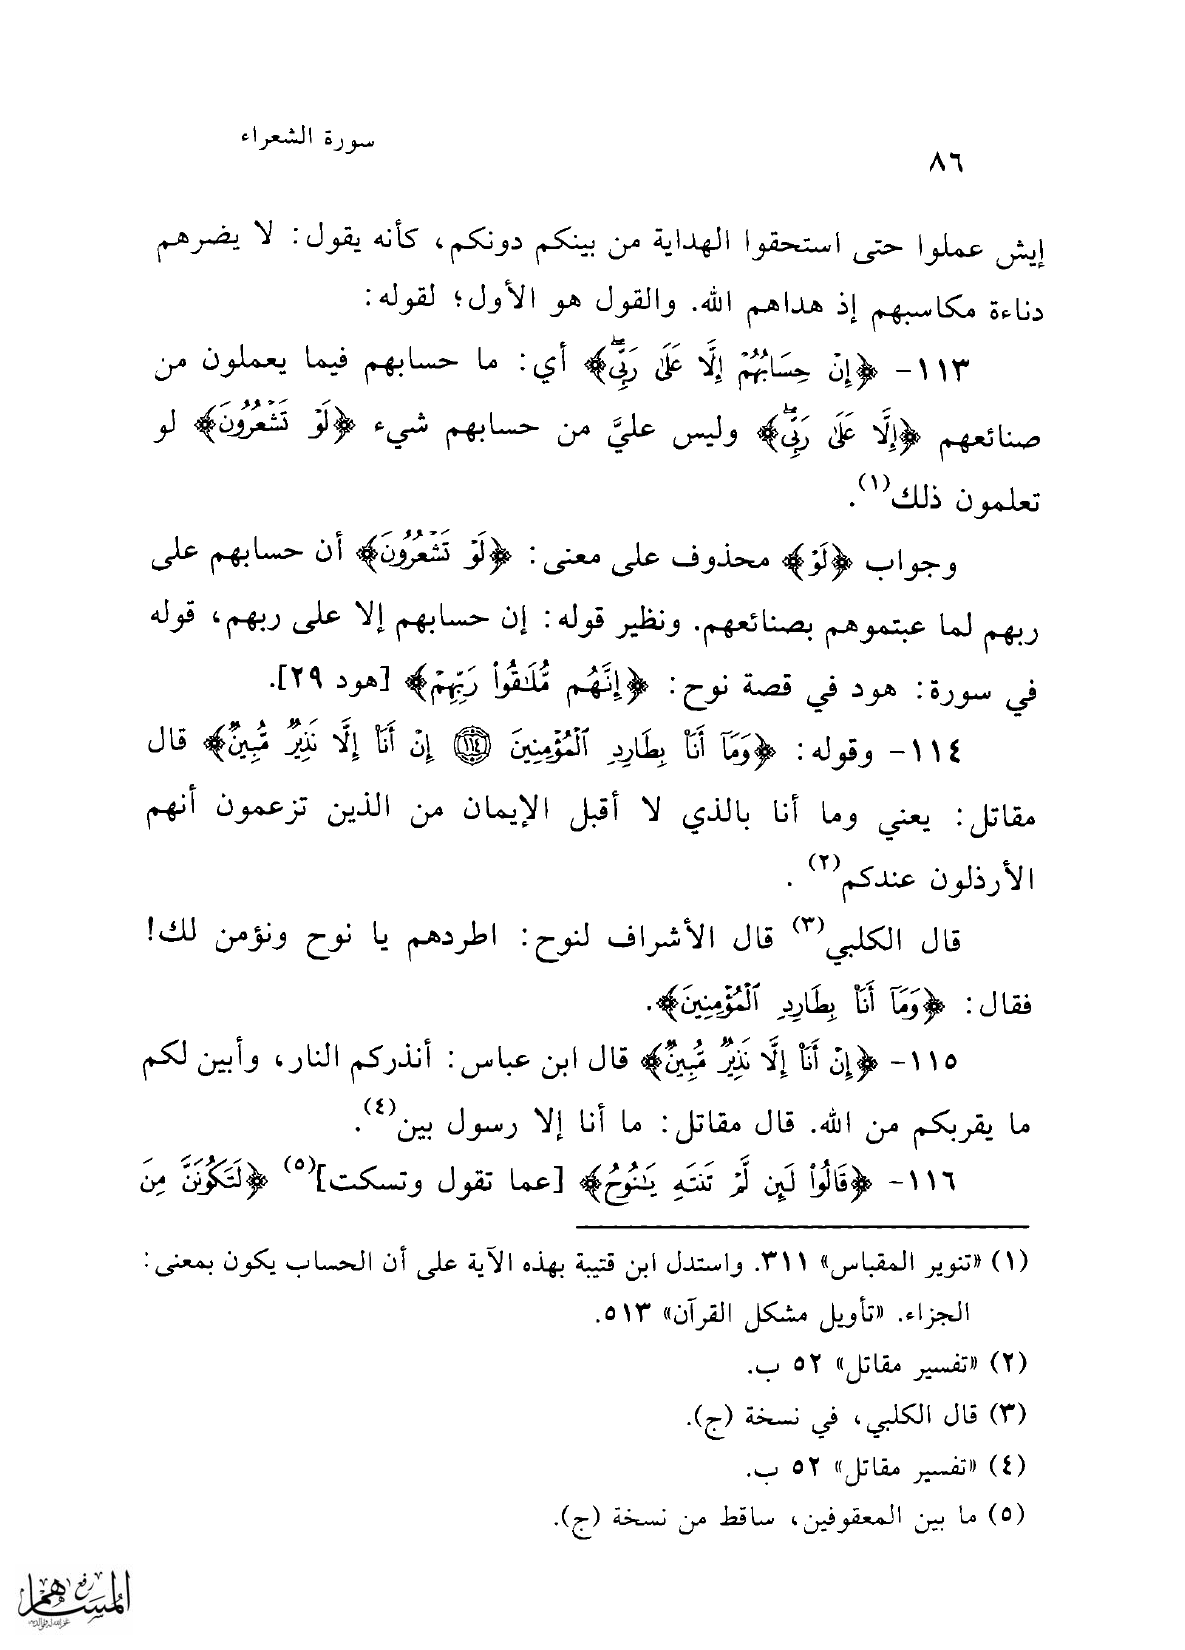 سورة الشعراء
٨٦
إيش عملوا حتى استحقوا الهداية من بينكم دونكم، كأنه يقول: لا يضرهم
دناءة مكاسبهم إذ هداهم الله. والقول هو الأول؛ لقوله:
١١٣- ﴿إِنْ حِسَابُهُمْ إِلَّا عَلَىٰ رَبِّي﴾ أي: ما حسابهم فيما يعملون من
صنائعهم ﴿إِلَّا عَلَىٰ رَبِّي﴾ وليس عليَّ من حسابهم شيء ﴿لَوْ تَشْعُرُونَ﴾ لو
تعلمون ذلك(١).
وجواب ﴿لَوْ﴾ محذوف على معنى: ﴿لَوْ تَشْعُرُونَ﴾ أن حسابهم على
ربهم لما عبتموهم بصنائعهم. ونظير قوله: إن حسابهم إلا على ربهم، قوله
في سورة: هود في قصة نوح: ﴿إِنَّهُم مُّلَـٰقُوا۟ رَبِّهِمْ﴾ [هود ٢٩].
١١٤- وقوله: ﴿وَمَآ أَنَا۠ بِطَارِدِ ٱلْمُؤْمِنِينَ ١١٤ إِنْ أَنَا۠ إِلَّا نَذِيرٌ مُّبِينٌ﴾ قال
مقاتل: يعني وما أنا بالذي لا أقبل الإيمان من الذين تزعمون أنهم
الأرذلون عندكم(٢) .
قال الكلبي(٣) قال الأشراف لنوح: اطردهم يا نوح ونؤمن لك!
فقال: ﴿وَمَآ أَنَا۠ بِطَارِدِ ٱلْمُؤْمِنِينَ﴾.
١١٥- ﴿إِنْ أَنَا۠ إِلَّا نَذِيرٌ مُّبِينٌ﴾ قال ابن عباس: أنذركم النار، وأبين لكم
ما يقربكم من الله. قال مقاتل: ما أنا إلا رسول بين(٤).
١١٦- ﴿قَالُوا۟ لَئِن لَّمْ تَنتَهِ يَـٰنُوحُ﴾ [عما تقول وتسكت](٥) ﴿لَتَكُونَنَّ مِنَ
(١) «تنوير المقباس» ٣١١. واستدل ابن قتيبة بهذه الآية على أن الحساب يكون بمعنى:
الجزاء. «تأويل مشكل القرآن» ٥١٣.
(٢) «تفسير مقاتل» ٥٢ ب.
(٣) قال الكلبي، في نسخة (ج).
(٤) «تفسير مقاتل» ٥٢ ب.
(٥) ما بين المعقوفين، ساقط من نسخة (ج).
رفع
المساهم